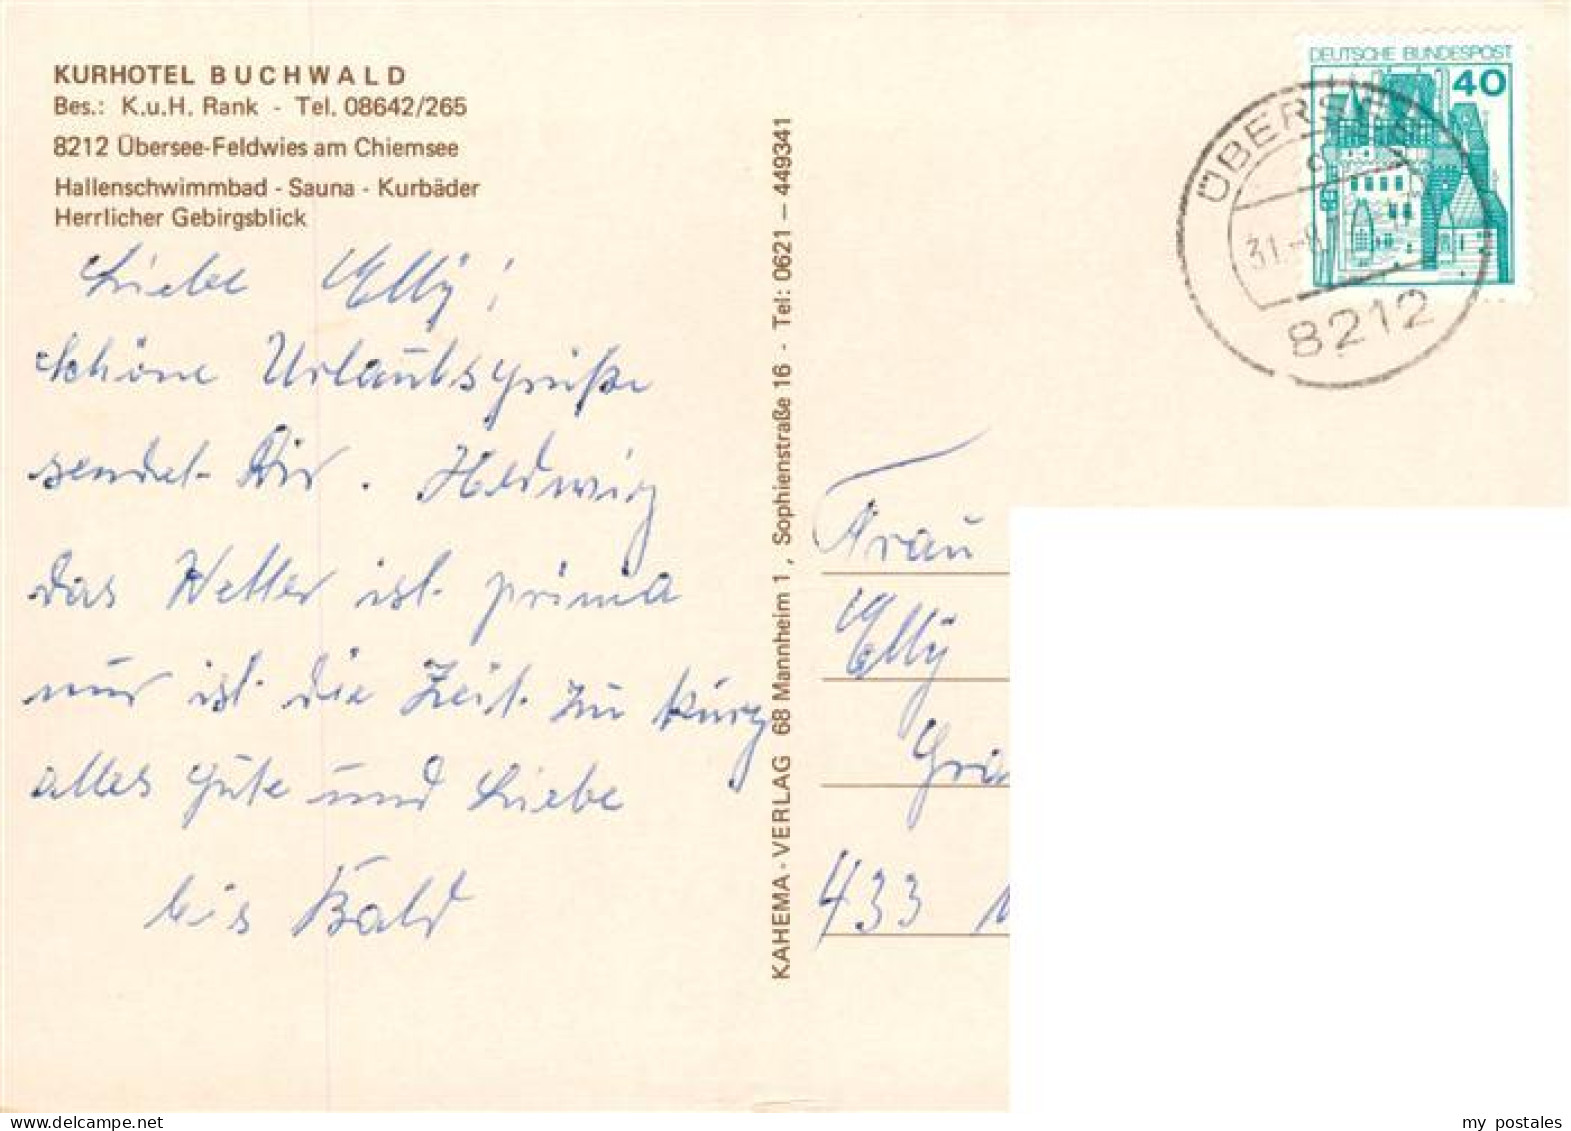 KURHOTEL BUCHWALD
Bes.: K.u.H. Rank - Tel. 08642/265
8212 Übersee-Feldwies am Chiemsee
Hallenschwimmbad - Sauna - Kurbäder
Herrlicher Gebirgsblick
Liebe Elly!
Schöne Urlaubsgrüße
sendet Dir. Hedwig
das Wetter ist prima
nur ist die Zeit zu kurz
alles gute und Liebe
bis Bald
KAHEMA-VERLAG 68 Mannheim 1, Sophienstraße 16 - Tel: 0621 - 449341
DEUTSCHE BUNDESPOST
40
ÜBERSEE
31.-8.
8212
Frau
Elly
433
my_postales